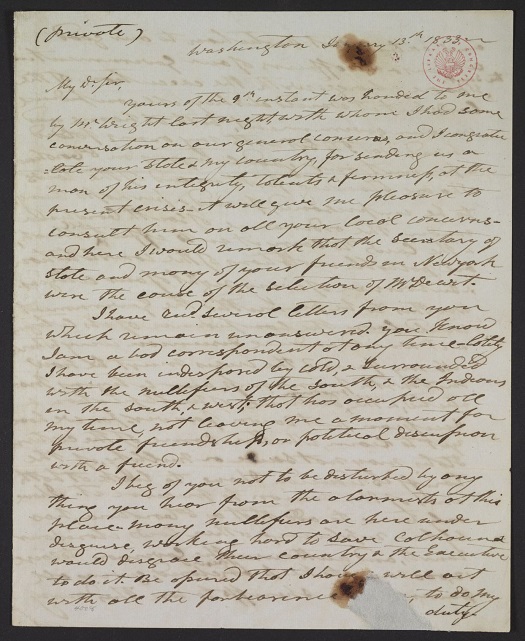 (private)
Washington Jry 13.th 1833
My Dr Sir,
yours of the 9th instant was handed to me
by Mr Wright last night with whom I had some
conversation on our general concerns, and I congratu
-late your State & my country, for sending us a
man of his integrity, talents & firmness, at the
present crisis- it will give me pleasure to
consult him on all your local concerns-
and here I would remark that the Secretary of
State and many of your friends in Newyork
were the cause of the selection of Mr
I have recd several letters from you
which remain unanswered. you know
I am a bad correspondent at any time- lately
I have been indisposed by cold, & surrounded
with the nullifiers of the south, & the Indians
in the south, & west, that has occupied all
my time, not leaving me a moment for
private friendship, or political discussion
with a friend.
I beg of you not to be disturbed by any
thing you hear from the alarmists at this
place- many nullifiers are here under
disguise, working hard to save Calhoun &
would disgrace their country & the Executive
to do it. Be assured that I have will act
with all the forbearance to do my
duty